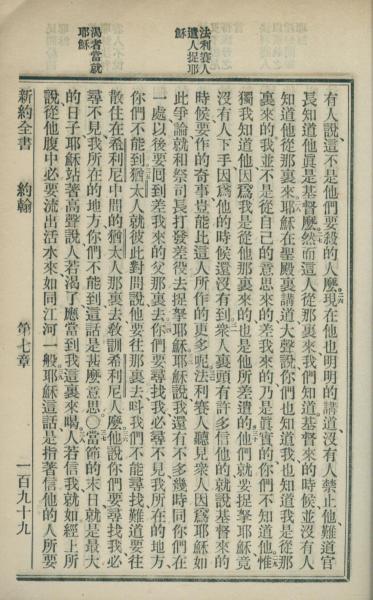 法利賽人
遣人捉耶
穌
渴者當就
耶穌
有人說、這不是他們要殺的人麼、現在他也明明的講道、沒有人禁止他、難道官
長知道他眞是基督麼、然而這人從那裏來、我們知道、基督來的時候、並沒有人
知道他從那裏來、耶穌在聖殿裏講道、大聲說、你們也知道我、也知道我是從那
裏來的、我並不是從自己的意思來的、差我來的、乃是眞實的、你們不知道他、惟
獨我知道他、因爲我是從他那裏來的、也是他所差遣的、他們就要捉拏耶穌、竟
沒有人下手、因爲他的時候還沒有到、衆人裏頭有許多信他的、就說、基督來的
時候、要作的奇事、豈能比這人所作的更多呢、法利賽人聽見衆人因爲耶穌如
此爭論、就和祭司長打發差役去捉拏耶穌、耶穌說、我還有不多幾時同你們在
一處、以後要回到差我來的父那裏去、你們要尋找我、必尋不見、我所在的地方、
你們不能到、猶太人就彼此對問說、他要往那裏去、叫我們不能尋找、難道要往
散住在希利尼中間的猶太人那裏去、敎訓希利尼人麼、他說你們要尋找我、必
尋不見、我所在的地方、你們不能到、這話是甚麼意思〇當節的末日、就是最大
的日子、耶穌站著高聲說、人若渴了、應當到我這裏來喝、人若信我、就如經上所
說、從他腹中必要流出活水來、如同江河一般、耶穌這話是指著信他的人所要
新約全書 約翰 第七章 一百九十九